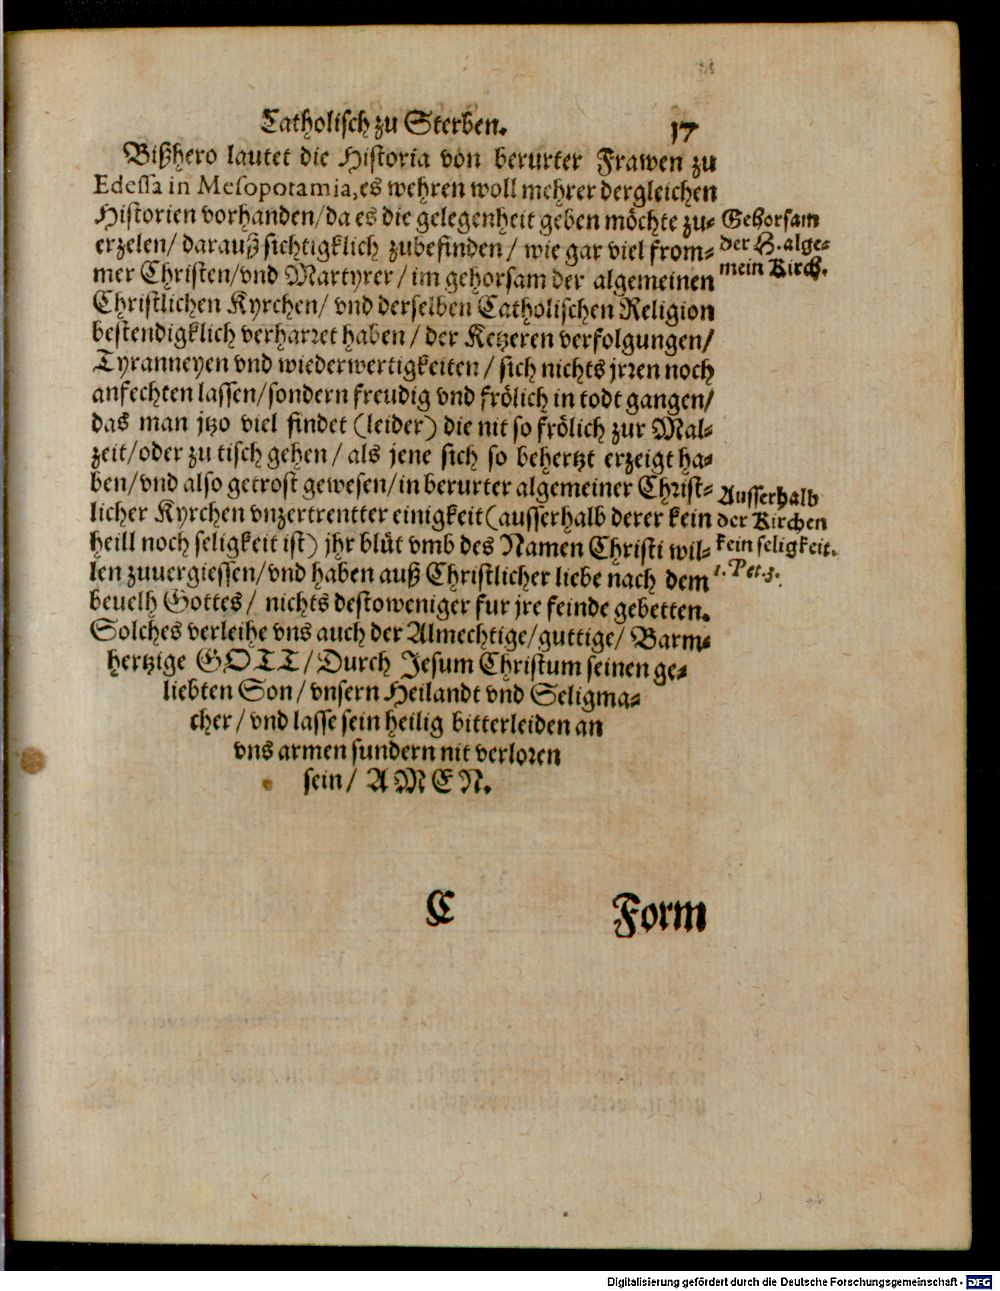 Catholisch zu Sterben. 17
Bißhero lautet die Historia von berurter Frawen zu
Edessa in Mesopotamia, es wehren woll mehrer dergleichen
Historien vorhanden/da es die gelegenheit geben möchte zu-
erzelen/ darauß sichtigklich zubefinden/ wie gar viel from-
mer Christen/vnd Martyrer/ im gehorsam der algemeinen
Christlichen Kyrchen/ vnd derselben Catholischen Religion
bestendigklich verharret haben/ der Ketzeren verfolgungen/
Tyranneyen vnd wiederwertigkeiten/ sich nichts jrren noch
anfechten lassen/sondern freudig vnd frölich in todt gangen/
das man jtzo viel findet (leider) die nit so frölich zur Mal-
zeit/oder zu tisch gehen/ als jene sich so behertzt erzeigt ha-
ben/vnd also getrost gewesen/in berurter algemeiner Christ-
licher Kyrchen vnzertrentter einigkeit (ausserhalb derer kein
heill noch seligkeit ist) jhr blůt vmb des Namen Christi wil-
len zuuergiessen/vnd haben auß Christlicher liebe nach dem
beuelh Gottes/ nichts destoweniger fur jre feinde gebetten.
Solches verleihe vns auch der Almechtige/guttige/ Barm-
hertzige GOTT/ Durch Jesum Christum seinen ge-
liebten Son/ vnsern Heilandt vnd Seligma-
cher/ vnd lasse sein heilig bitterleiden an
vns armen sundern nit verloren
sein/ AMEN.
Gehorsam
der H. alge-
mein Kirch.
Ausserhalb
der Kirchen
kein seligkeit.
1. Pet. 3.
C Form
Digitalisierung gefördert durch die Deutsche Forschungsgemeinschaft - DFG